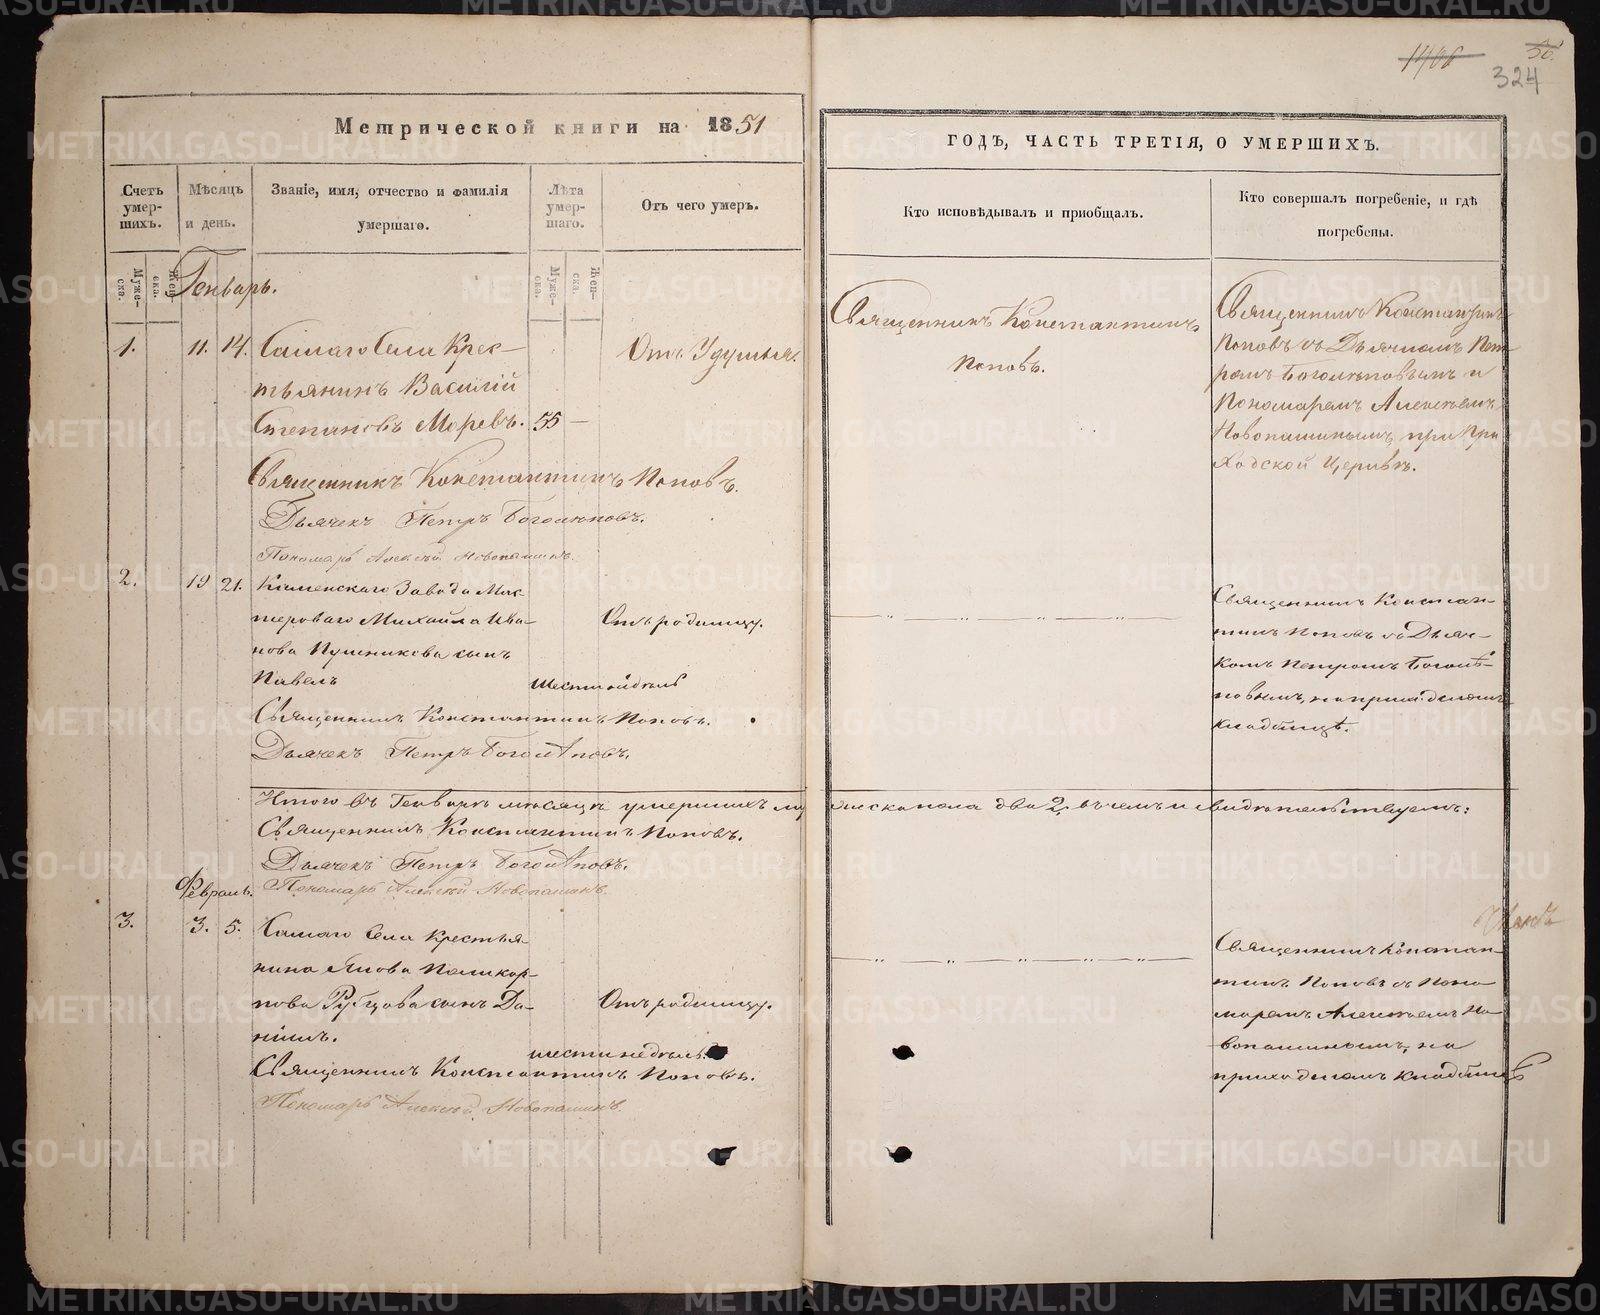 1406
56.
324
Метрической книги на 1851
ГОДЪ, ЧАСТЬ ТРЕТІЯ, О УМЕРШИХЪ.
Счетъ умер-
шихъ.
Мѣсяцъ
и день.
Званіе, имя, отчество и фамилія
умершаго.
Лѣта
умер-
шаго.
Отъ чего умеръ.
Кто исповѣдывалъ и пріобщалъ.
Кто совершалъ погребеніе, и гдѣ
погребены.
Муже-
ска.
Жен-
ска.
Муже-
ска.
Жен-
ска.
Генварь.
1.
11. 14.
Самаго Села Крес-
тьянинъ Василій
Степановъ Моревъ. 55 —
Отъ Удушья.
Священникъ Константинъ
Поповъ.
Священникъ Константинъ
Поповъ съ Дьячкомъ Пет-
ромъ Боголѣповымъ и
Пономаремъ Алексѣемъ
Новопашинымъ, при При
ходской Церкви.
Священникъ Константинъ Поповъ.
Дьячекъ Петръ Боголѣповъ.
Пономарь Алексѣй Новопашинъ.
2.
19 21.
Каменскаго Завода Мас-
тероваго Михайла Ива-
нова Пушникова сынъ
Павелъ
шести недѣль
Отъ родимцу.
Священникъ Констан-
тинъ Поповъ съ Дьяч-
комъ Петромъ Боголѣ-
повымъ, на приходскомъ
кладбищѣ.
Священникъ Константинъ Поповъ.
Дьячекъ Петръ Боголѣповъ.
Итого въ Генварѣ мѣсяцѣ умершихъ му жеска пола два 2, въ чемъ и свидѣтельствуемъ:
Священникъ Константинъ Поповъ.
Дьячекъ Петръ Боголѣповъ.
Пономарь Алексѣй Новопашинъ.
Февраль.
3.
3. 5.
Самаго Села Крестья-
нина Поликар-
пова Рубцова сынъ Да-
ніилъ.
шести недѣль
Отъ родимцу.
Священникъ Констан-
тинъ Поповъ съ Поно-
маремъ Алексѣемъ Но-
вопашинымъ, на
приходскомъ кладбищѣ
Священникъ Константинъ Поповъ.
Пономарь Алексѣй Новопашинъ.
METRIKI.GASO-URAL.RU